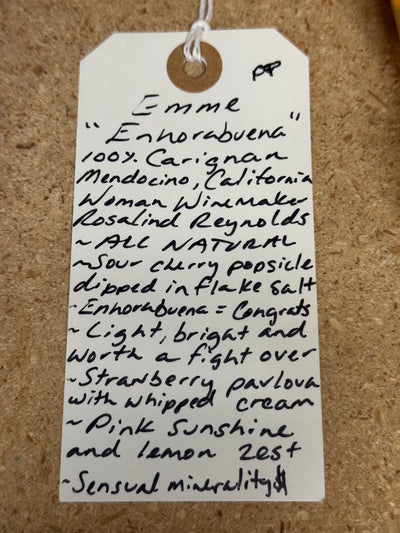 Emme
"Enhorabuena"
100% Carignan
Mendocino, California
Woman Winemaker
Rosalind Reynolds
~ ALL NATURAL
~Sour cherry popsicle
dipped in flake salt
-Enhorabuena = Congrats
~ Light, bright and
worth a fight over
~Strawberry pavlova
with whipped cream
~ Pink Sunshine
and lemon zest
~Sensual minerality